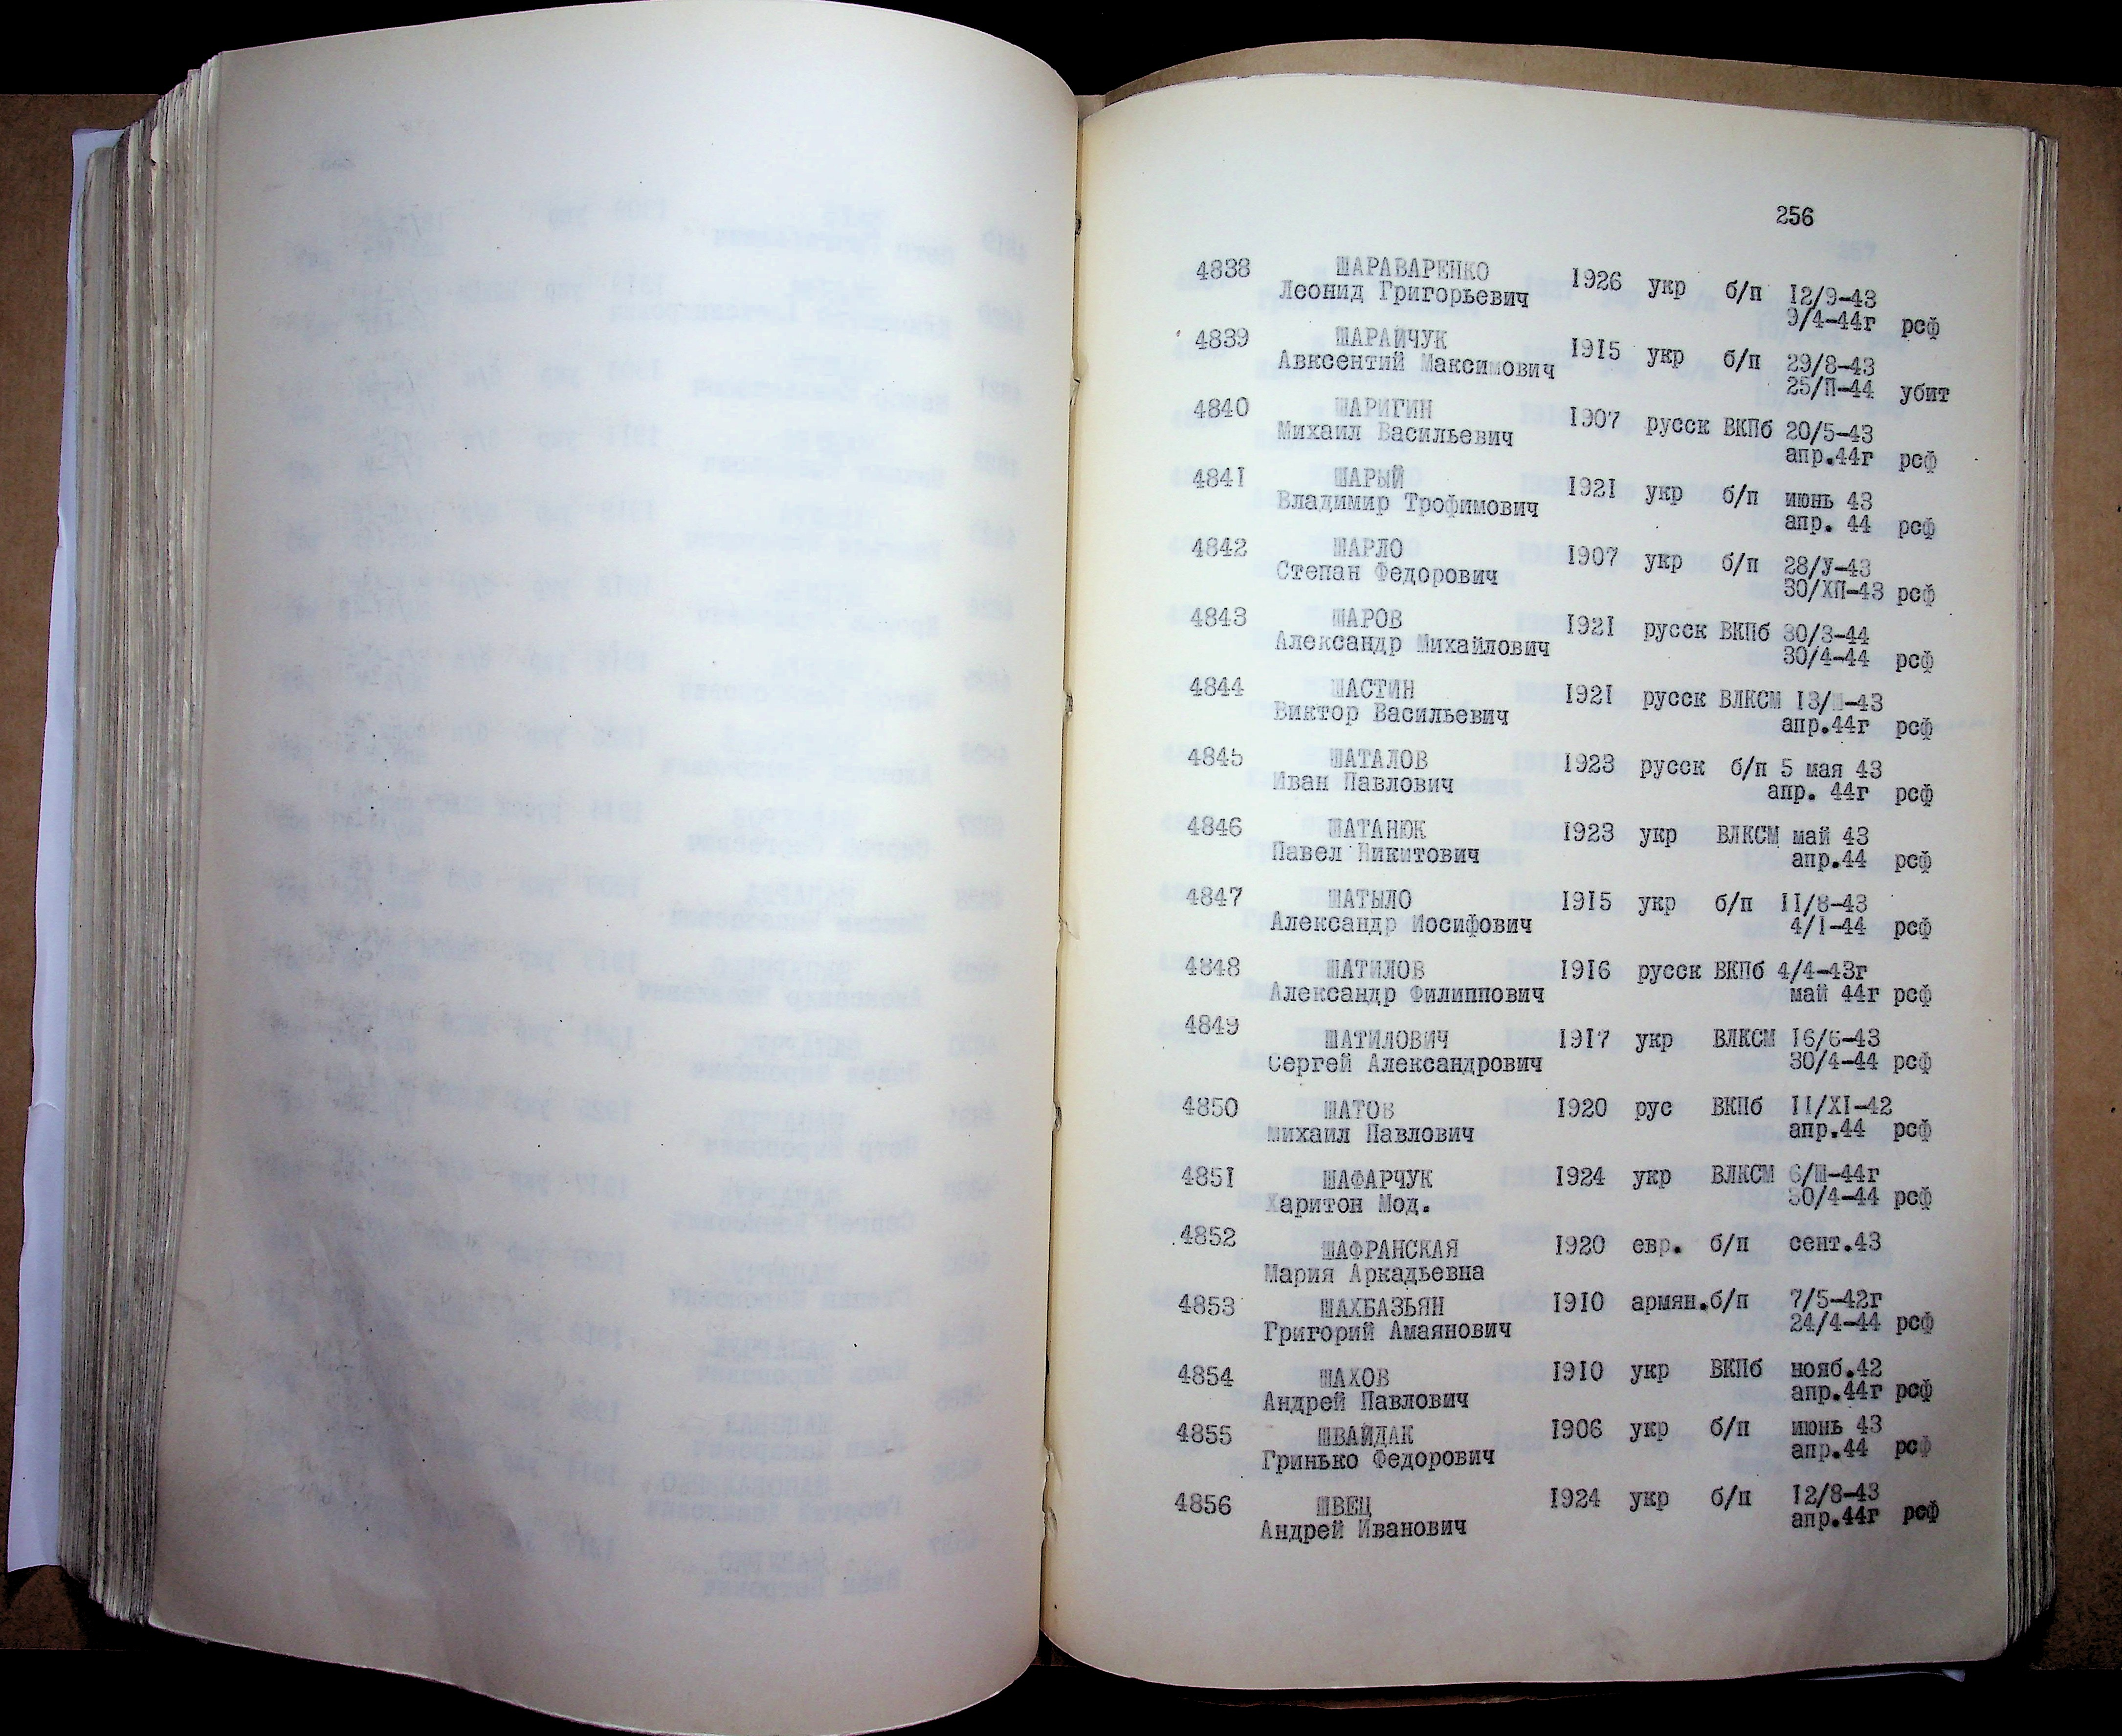 256
4838 ШАРАВАРЕНКО 1926 укр б/п 12/9-43
Леонид Григорьевич 9/4-44г рсф
4839 ШАРАЙЧУК 1915 укр б/п 29/8-43
Авксентий Максимович 25/П-44 убит
4840 ШАРИГИН 1907 русск ВКПб 20/5-43
Михаил Васильевич апр.44г рсф
4841 ШАРЫЙ 1921 укр б/п июнь 43
Владимир Трофимович апр. 44 рсф
4842 ШАРЛО 1907 укр б/п 28/У-43
Степан Федорович 30/ХП-43 рсф
4843 ШАРОВ 1921 русск ВКПб 30/3-44
Александр Михайлович 30/4-44 рсф
4844 ШАСТИН 1921 русск ВЛКСМ 13/Ш-43
Виктор Васильевич апр.44г рсф
4845 ШАТАЛОВ 1923 русск б/п 5 мая 43
Иван Павлович апр. 44г рсф
4846 ШАТАНЮК 1923 укр ВЛКСМ май 43
Павел Никитович апр.44 рсф
4847 ШАТЫЛО 1915 укр б/п II/8-43
Александр Иосифович 4/I-44 рсф
4848 ШАТИЛОВ 1916 русск ВКПб 4/4-43г
Александр Филиппович май 44г рсф
4849 ШАТИЛОВИЧ 1917 укр ВЛКСМ 16/6-43
Сергей Александрович 30/4-44 рсф
4850 ШАТОВ 1920 рус ВКПб II/XI-42
Михаил Павлович апр.44 рсф
4851 ШАФАРЧУК 1924 укр ВЛКСМ 6/Ш-44г
Харитон Мод. 30/4-44 рсф
4852 ШАФРАНСКАЯ 1920 евр. б/п сент.43
Мария Аркадьевна
4853 ШАХБАЗЬЯН 1910 армян.б/п 7/5-42г
Григорий Амаянович 24/4-44 рсф
4854 ШАХОВ 1910 укр ВКПб нояб.42
Андрей Павлович апр.44г рсф
4855 ШВАЙДАК 1906 укр б/п июнь 43
Гринько Федорович апр.44 рсф
4856 ШВЕЦ 1924 укр б/п 12/8-43
Андрей Иванович апр.44г рсф